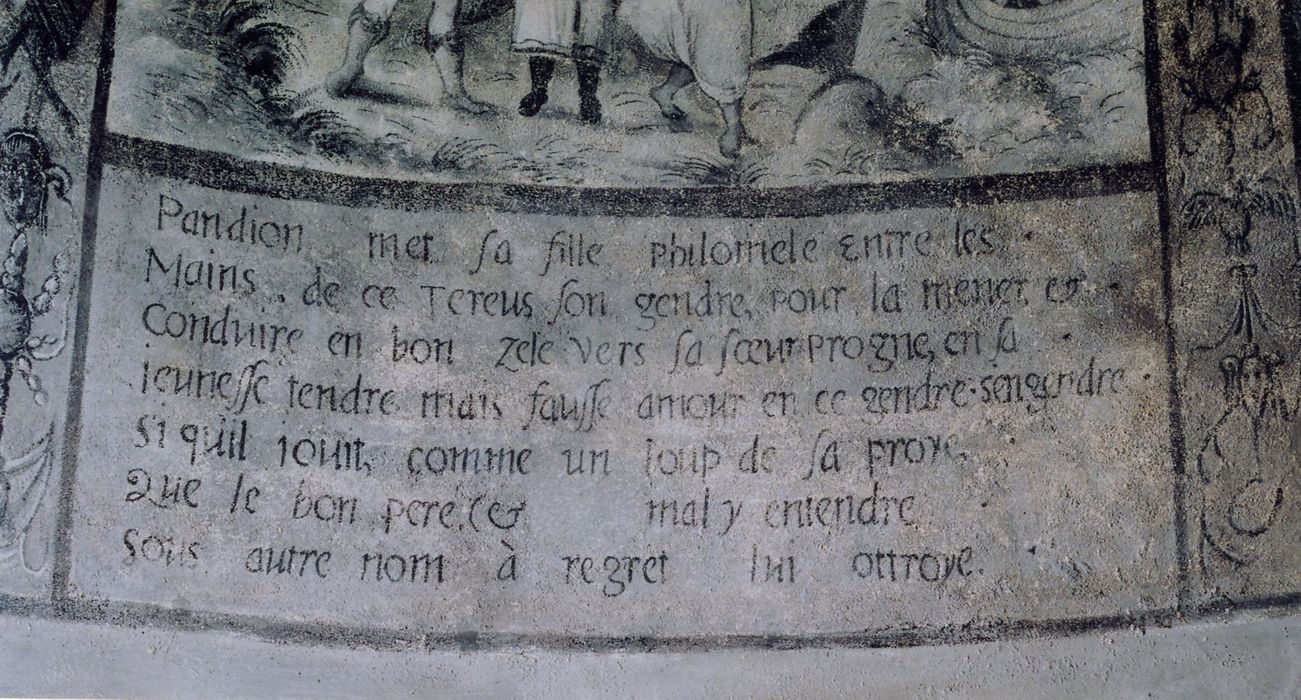 Pandion met sa fille philomele Entre les
Mains . de ce Tereus, son gendre, pour la mener &
Conduire en bon zele vers sa sœur progne, en sa
ieunesse tendre mais fausse amour en ce gendre sengendre
Si qu'il iouit, comme un loup de sa proye,
Que le bon pere, (& mal y entendre
Sous autre nom à regret lui ottroye.